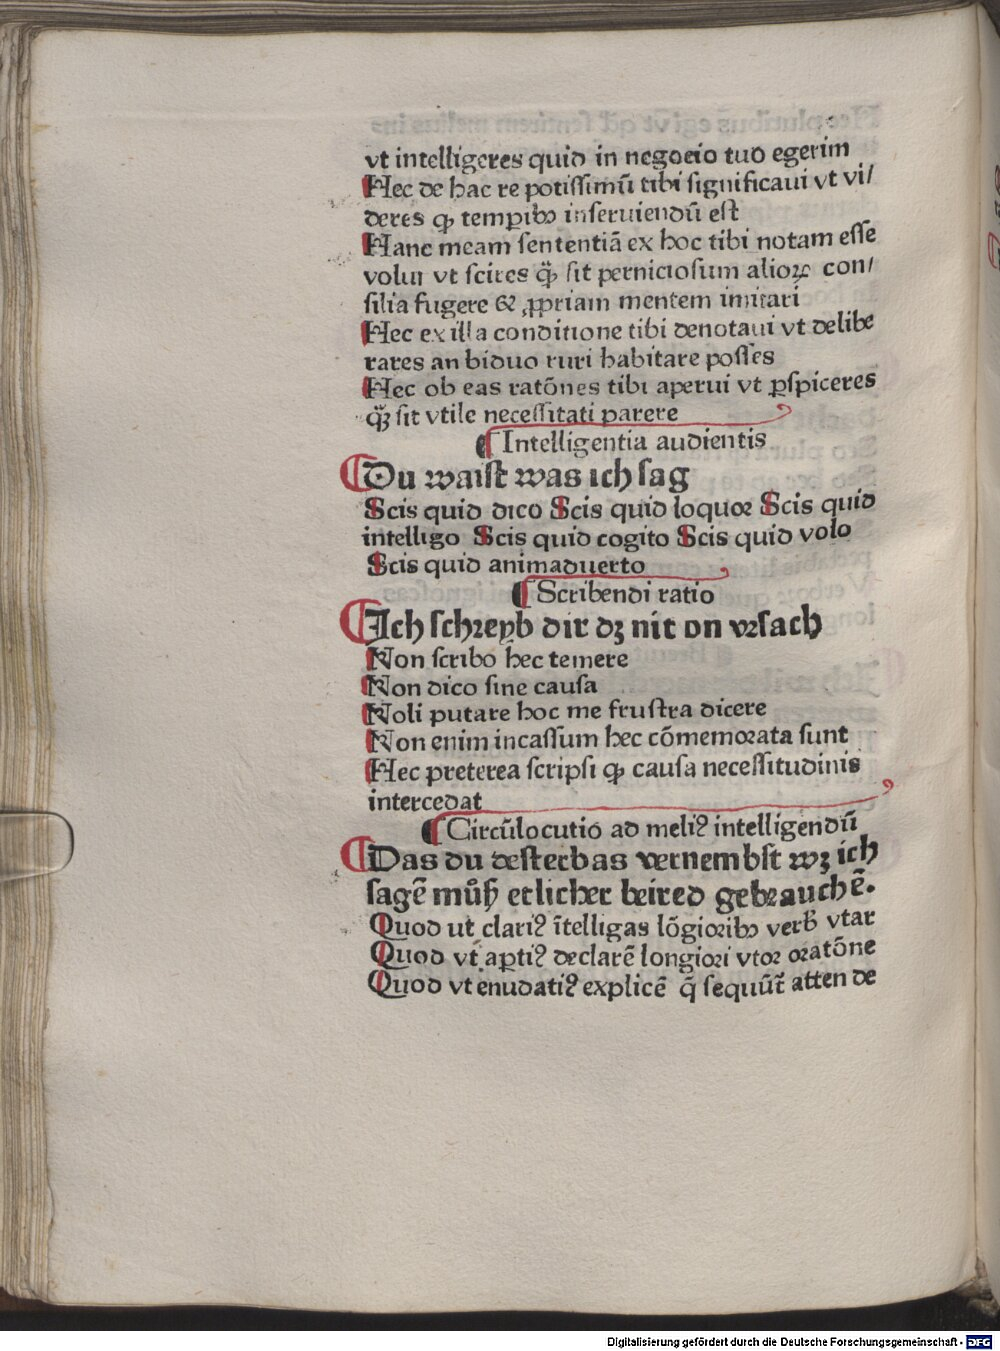 vt intelligeres quid in negocio tuo egerim
Hec de hac re potissimū tibi significaui vt vi/
deres ꝙ tempibꝰ inseruiendū est
Hanc meam sententiā ex hoc tibi notam esse
volui vt scires q̄ꝫ sit perniciosum alioꝝ con/
silia fugere & ꝓpriam mentem imitari
Hec ex illa conditione tibi denotaui vt delibe
rares an biduo ruri habitare posses
Hec ob eas ratōnes tibi aperui vt ꝑspiceres
q̄ꝫ sit vtile necessitati parere
¶ Intelligentia audientis
¶ Du waist was ich sag
Scis quid dico Scis quid loquor Scis quid
intelligo Scis quid cogito Scis quid volo
Scis quid animaduerto
¶ Scribendi ratio
¶ Ich schreyb dir dꝫ nit on vrsach
Non scribo hec temere
Non dico sine causa
Noli putare hoc me frustra dicere
Non enim incassum hec cōmemorata sunt
Hec preterea scripsi ꝙ causa necessitudinis
intercedat
¶ Circūlocutio ad meliꝰ intelligendū
¶ Das du desterbas vernembst wꝫ ich
sagē můß etlicher beired gebrauchē.
Quod ut clariꝰ ītelligas lōgioribꝰ verb̄ vtar
Quod vt aꝑtiꝰ declarē longiori vtor oratōne
Quod vt enudatiꝰ explicē q̄ sequūt̄ atten de
Digitalisierung gefördert durch die Deutsche Forschungsgemeinschaft - DFG